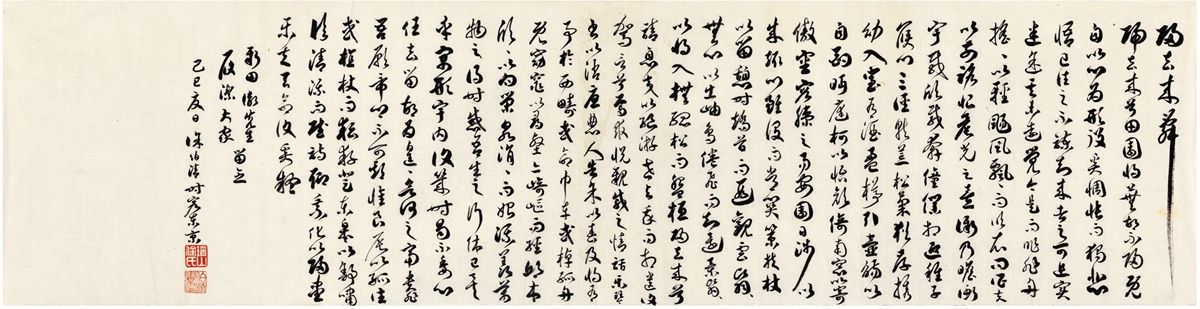 歸去來辭
歸去來兮田園將蕪胡不歸既
自以心為形役奚惆悵而獨悲
悟已往之不諫知來者之可追實
迷途其未遠覺今是而昨非舟
搖搖以輕颺風飄飄而吹衣問征夫
以前路恨晨光之熹微乃瞻衡
宇載欣載奔僮僕歡迎稚子
候門三徑就荒松菊猶存攜
幼入室有酒盈樽引壺觴以
自酌眄庭柯以怡顏倚南窗以寄
傲審容膝之易安園日涉以
成趣門雖設而常關策扶
以憩時矯首而遐觀雲
無心以出岫鳥倦飛而知還景翳翳
以將入撫孤松而盤桓歸去來兮
請息交以絕游世與我而相遺復
駕言兮焉求悅親戚之情話樂琴
書以消憂農人告余以春及將有
事於西疇或命巾車或棹孤舟
既窈窕以尋壑亦崎嶇而經丘木
欣欣以向榮泉涓涓而始流羨萬
物之得時感吾生之行休已矣
乎寓形宇內復幾時曷不委心
任去留胡為遑遑欲何之富貴非
吾願帝鄉不可期懷良辰以孤往
或植杖而耘耔登東皋以舒嘯
臨清流而賦詩聊乘化以歸盡
樂夫天命復奚疑
新田徹先生 留念
己巳夏日 徐伯清時客東京